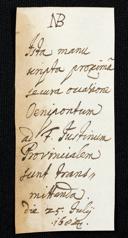 NB
Ista manu
scripta proximâ
secura occasione
Oenipontum
ad P. Justinum
Provincialem
sunt trans=
mittenda
die 25. Julij